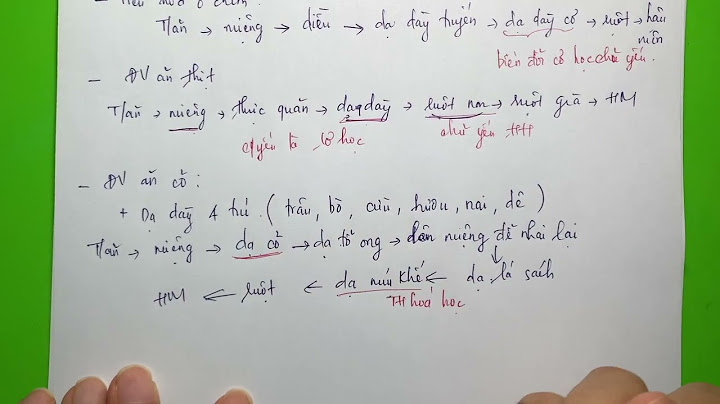 - Tiêu hoá ở chim:
T/ăn → miệng → diều → dạ dày tuyến → dạ dày cơ → ruột → hậu
môn
biến đổi cơ học chủ yếu.
- ĐV ăn thịt
T/ăn → miệng → thực quản → dạ dày → ruột non → ruột già → HM
c/yếu là cơ học
chủ yếu HH
- ĐV ăn cỏ:
+ Dạ dày 4 túi. (trâu, bò, cừu, hươu, nai, dê)
T/ăn → miệng → dạ cỏ → dạ tổ ong → lên miệng để nhai lại
HM ← ruột ← dạ múi khế ← dạ lá sách
TH hoá học